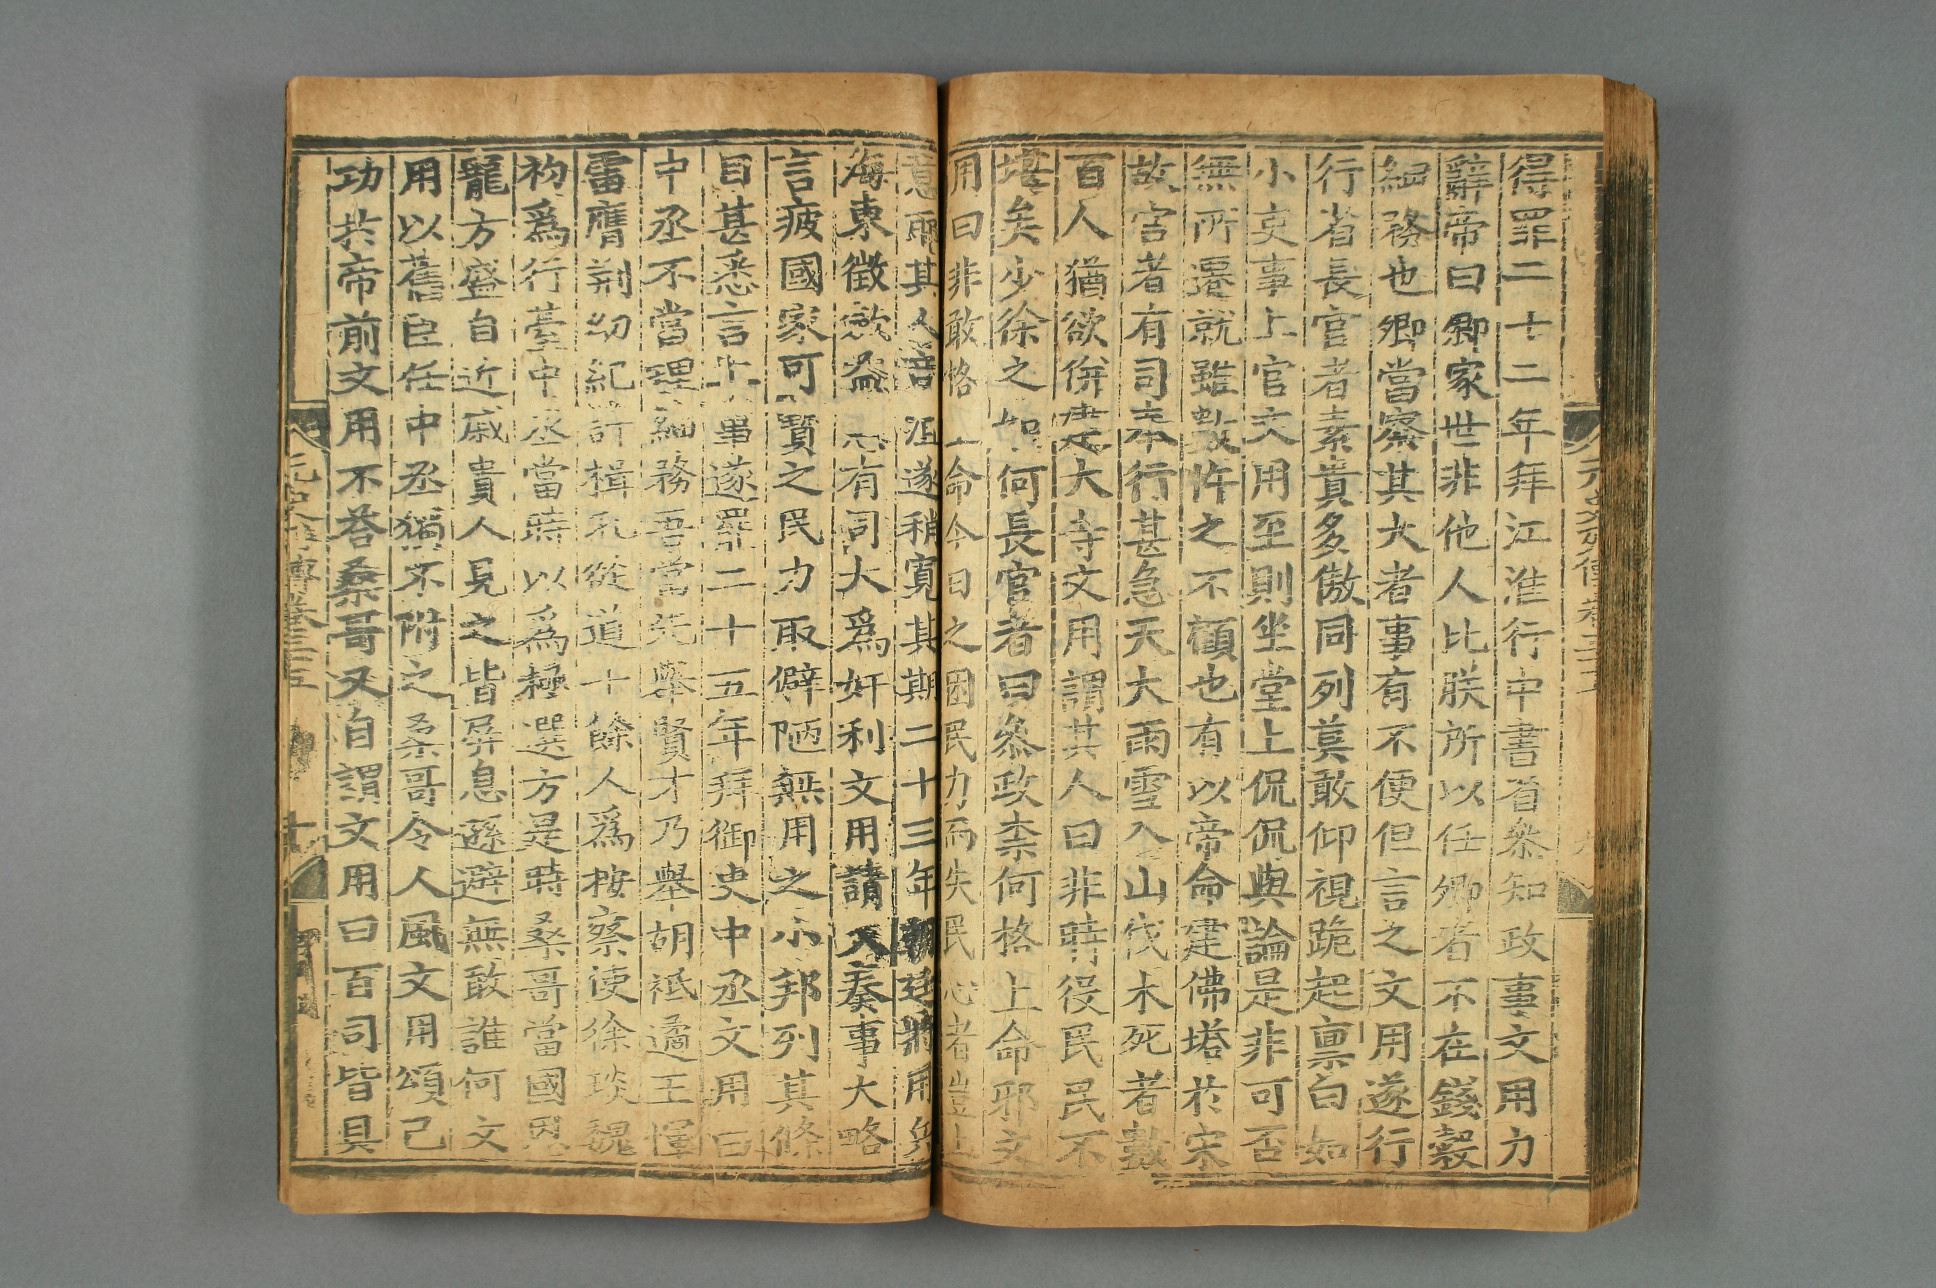 得罪二十二年拜江淮行中書省參知政事文用力
辭帝曰卿家世非他人比朕所以任卿者不在錢穀
細務也卿當察其大者事有不便但言之文用遂行
行省長官者素貴多傲同列莫敢仰視跪起稟白如
小吏事上官文用至則坐堂上侃侃與論是非可否
無所遷就雖數忤之不顧也有以帝命建佛塔於宋
故宮者有司奉行甚急天大雨雪入山伐木死者數
百人猶欲併建大寺文用謂其人曰非時役民民不
堪矣少徐之如何長官者曰參政柰何格上命邪文
用曰非敢格上命今日之困民力而失民心者豈上
意耶其人意沮遂稍寬其期二十三年朝廷將用兵
海東徵歛益急有司大為奸利文用請入奏事大略
言疲國家可寶之民力取僻陋無用之小邦列其條
目甚悉言上事遂罷二十五年拜御史中丞文用曰
中丞不當理細務吾當先舉賢才乃舉胡祗遹王惲
雷膺荊幼紀許楫孔從道十餘人為按察使徐琰魏
初為行臺中丞當時以為極選方是時桑哥當國恩
寵方盛自近戚貴人見之皆屏息遜避無敢誰何文
用以舊臣任中丞獨不附之桑哥令人風文用頌己
功於帝前文用不荅桑哥又自謂文用曰百司皆具
元史列傳卷三十五
十